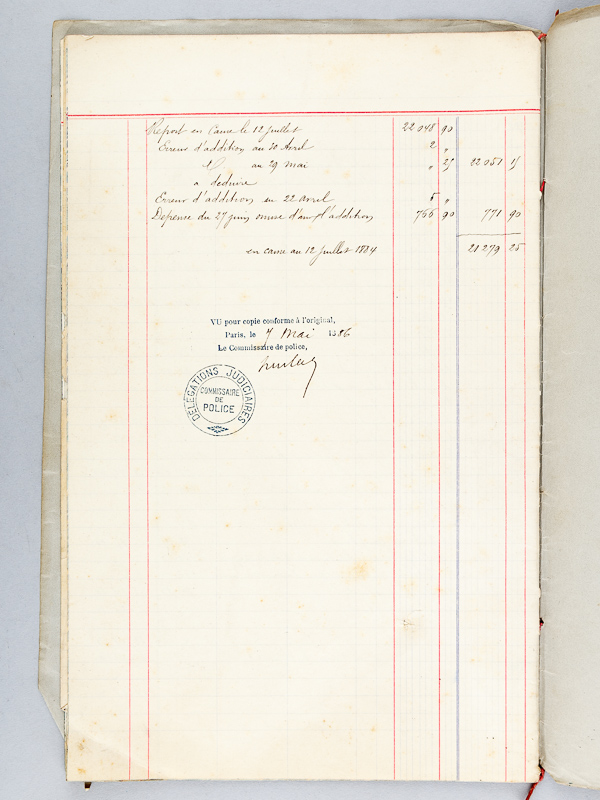 Report en caisse le 12 juillet 22 048 90
Erreur d'addition au 30 Avril 2 "
dº au 29 mai " 25 22 051 15
a deduire
Erreur d'addition en 22 avril 5 "
Depense du 27 juin omise dans l'addition 766 90 771 90
en caisse au 12 juillet 1884 21 279 25
VU pour copie conforme à l'original,
Paris, le 7 Mai 1886
Le Commissaire de police,
DÉLÉGATIONS JUDICIAIRES
COMMISSAIRE
DE
POLICE